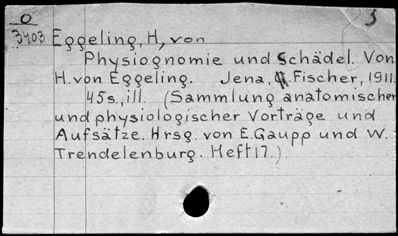 O
3403 Eggeling, H, von
Physiognomie und Schädel. Von
H. von Eggeling. Jena, G. Fischer, 1911.
45s., ill. (Sammlung anatomischer
und physiologischer Vorträge und
Aufsätze. Hrsg. von E. Gaupp und W.
Trendelenburg. Heft 17.)